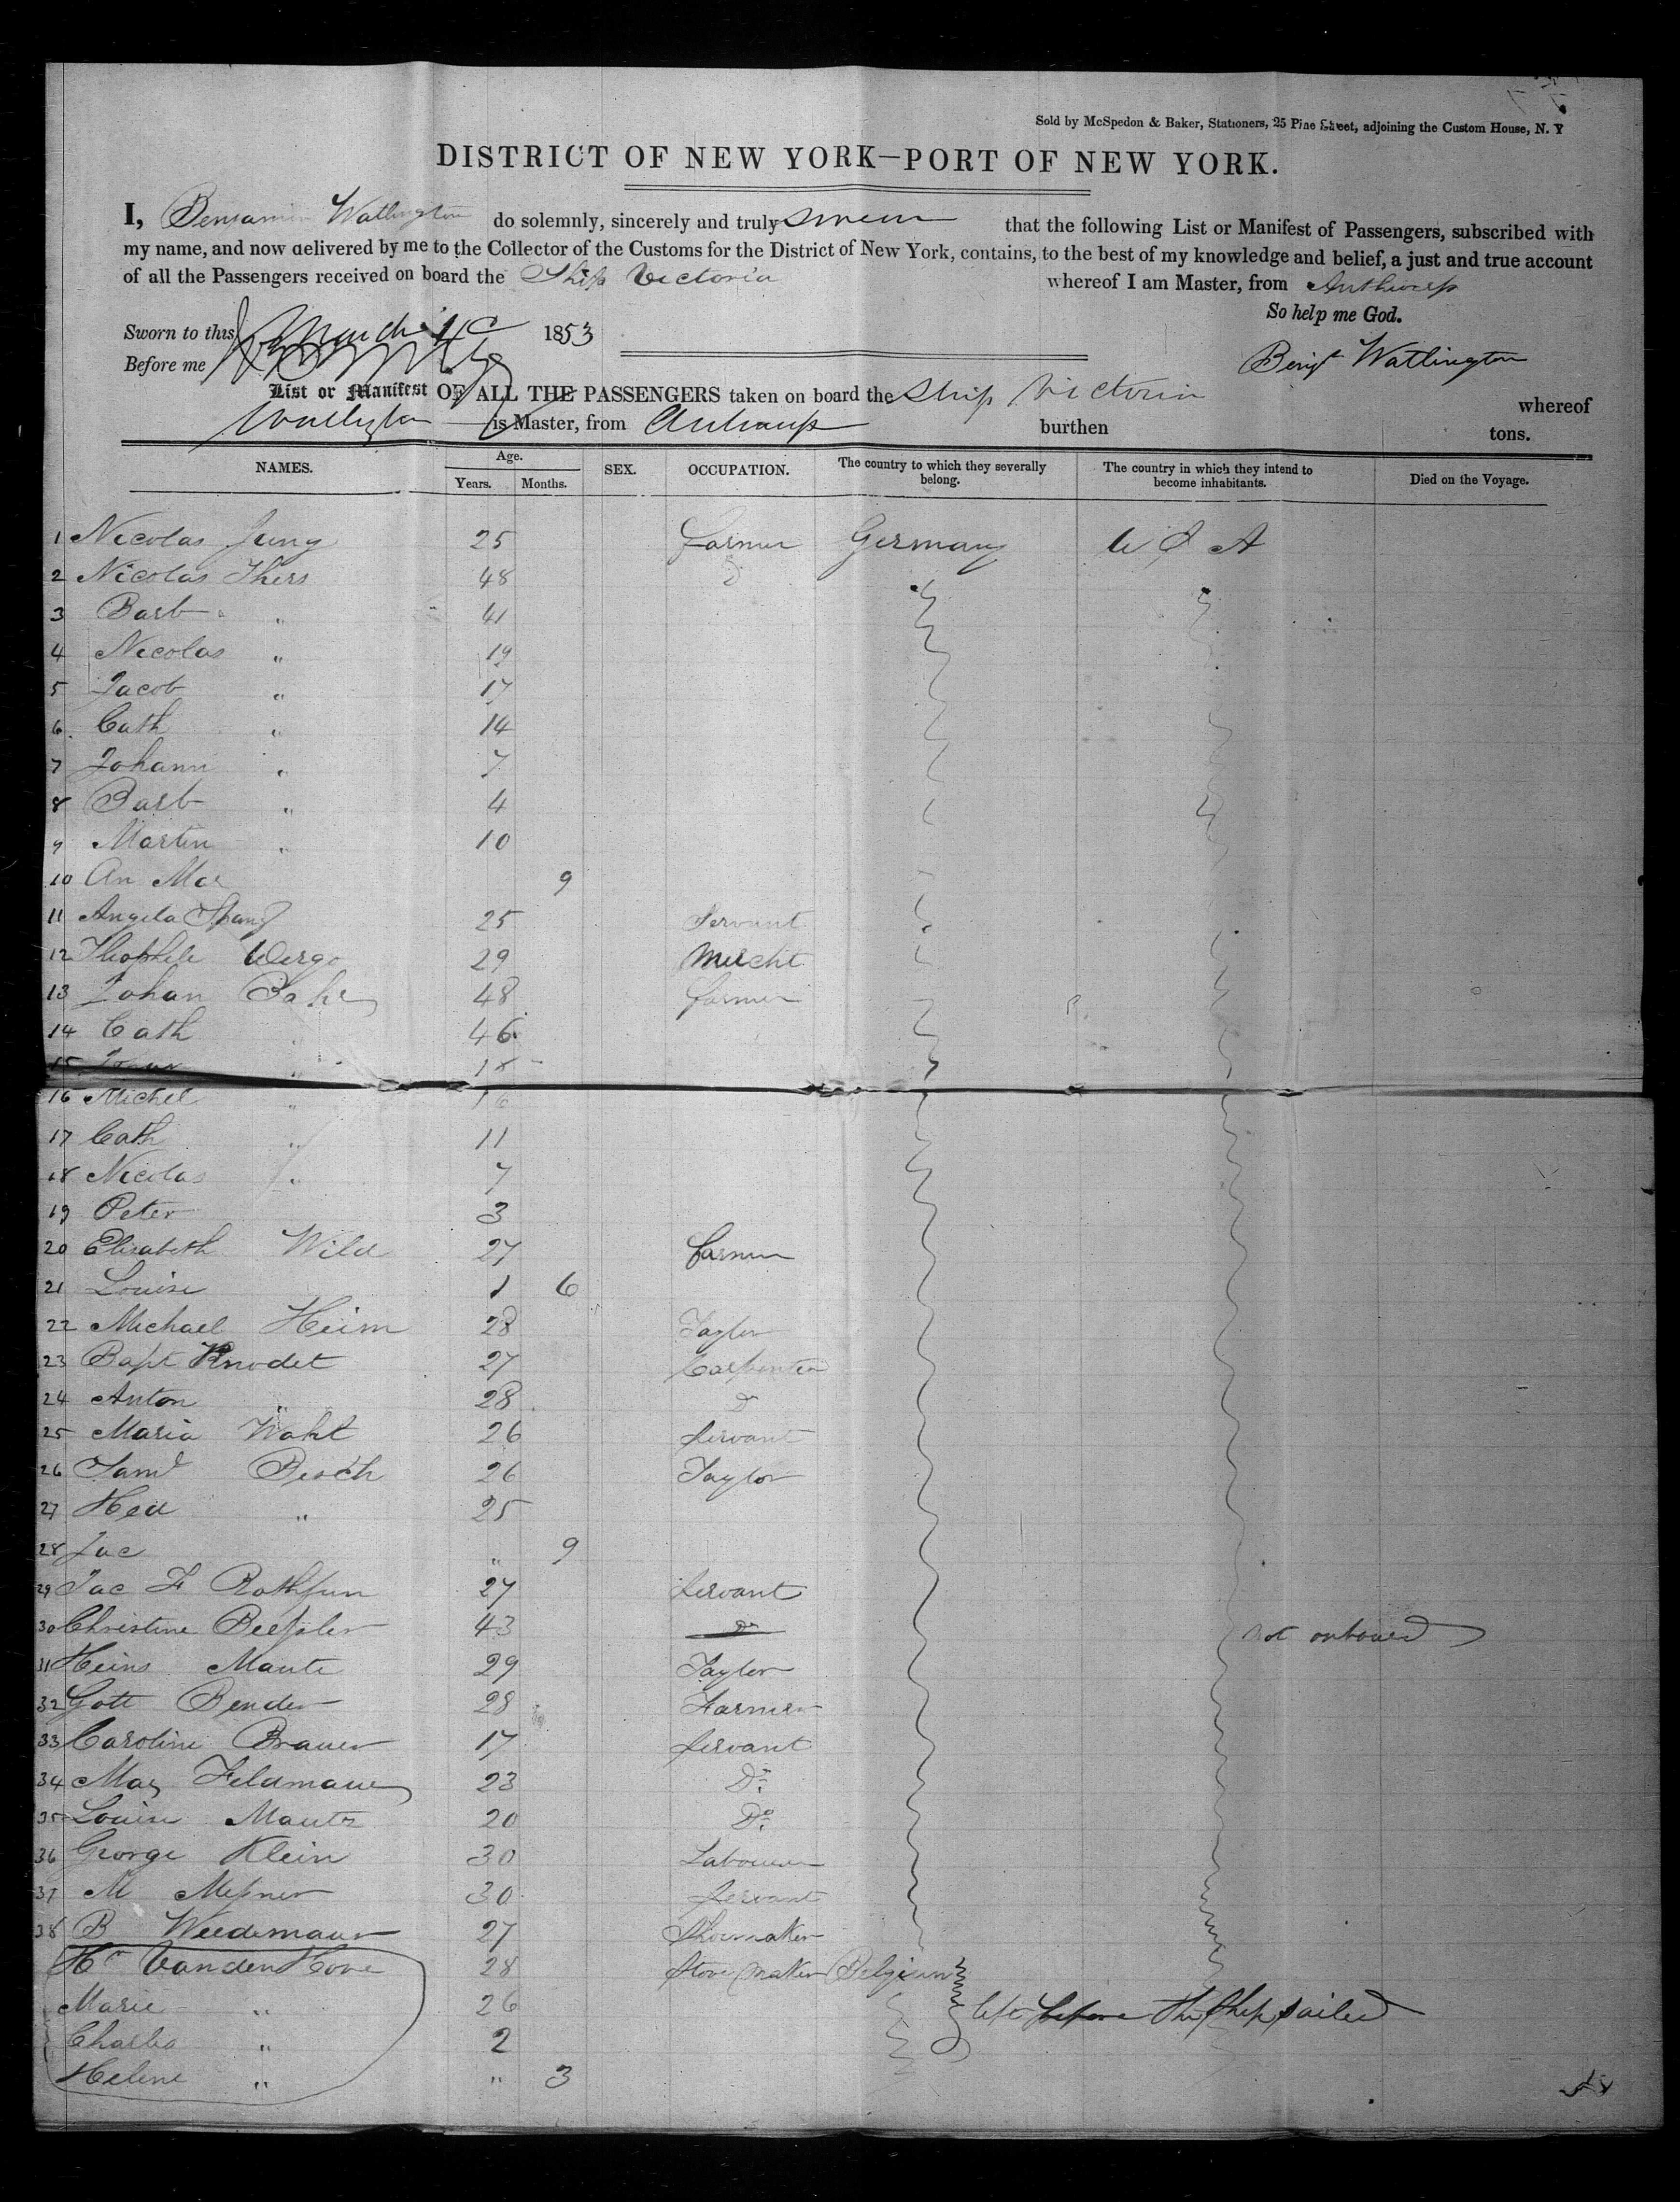 Sold by McSpedon & Baker, Stationers, 25 Pine Street, adjoining the Custom House, N. Y
DISTRICT OF NEW YORK—PORT OF NEW YORK.
I, Benjamin Watlington do solemnly, sincerely and truly swear that the following List or Manifest of Passengers, subscribed with
my name, and now delivered by me to the Collector of the Customs for the District of New York, contains, to the best of my knowledge and belief, a just and true account
of all the Passengers received on board the Ship Victoria whereof I am Master, from Anthwerp
So help me God.
Sworn to this March 1853
Before me
Benjn Watlington
List or Manifest OF ALL THE PASSENGERS taken on board the Ship Victoria whereof
Watlington is Master, from Antwerp burthen tons.
NAMES. Age. Years. Months. SEX. OCCUPATION. The country to which they severally belong. The country in which they intend to become inhabitants. Died on the Voyage.
1 Nicolas Jung 25 farmer Germany U S A
2 Nicolas Thers 48 D
3 Barb " 41
4 Nicolas " 19
5 Jacob " 17
6 Cath " 14
7 Johann " 7
8 Barb " 4
9 Martin " 10
10 An Mar 9
11 Angela 25 Servant
12 Theophile 29 Mercht
13 Johan 48 farmer
14 Cath 46
15 "
16 Michel " 16
17 Cath " 11
18 Nicolas " 7
19 Peter 3
20 Elisabeth Wild 27 farmer
21 Louise 1 6
22 Michael Heim 28 Taylor
23 Bapt Knodet 27 Carpenter
24 Anton " 28 do
25 Maria Waht 26 servant
26 Saml Besch 26 Taylor
27 Hed " 25
28 Jac " 9
29 Jac F Rothfun 27 servant
30 Christine Beeßler 43 do not onboard
31 Heins Mante 29 Taylor
32 Gott Bender 28 Farmer
33 Caroline Brauer 17 servant
34 Mar Feldmauer 23 Do
35 Louise Mautz 20 Do
36 George Klein 30 Labourer
37 M Meßner 30 servant
38 B Weedemauer 27 Shoemaker
Hc Vanden Hove 28 Stove maker Belgium
Marie " 26 left before the ship sailed
Charles " 2
Helene " " 3